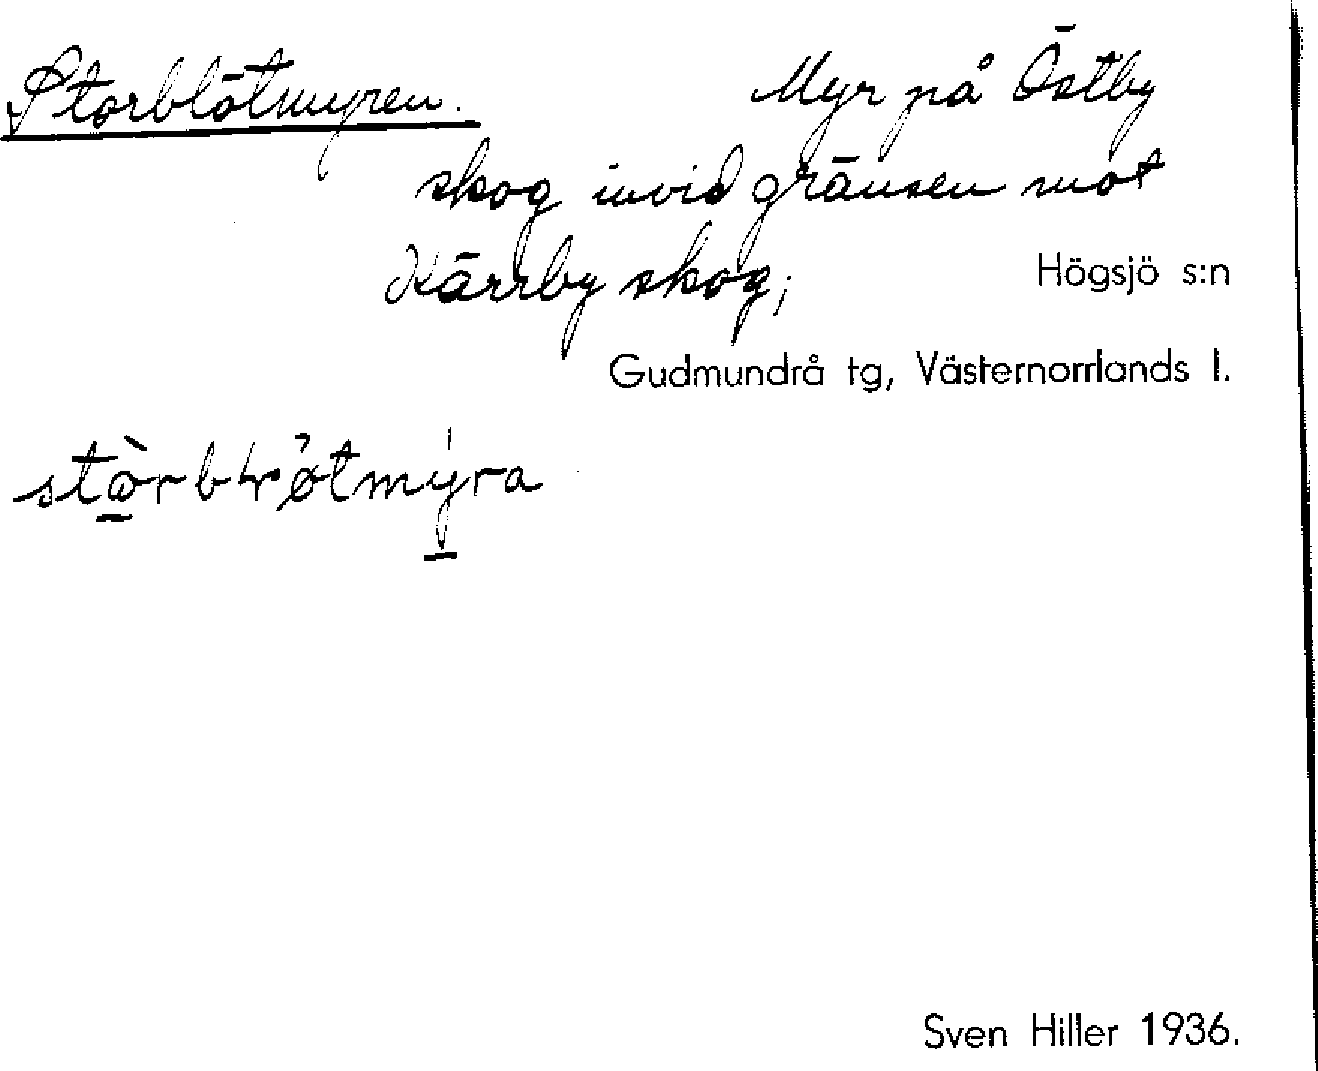 Storblötmyren. Myr på Östby
skog invid gränsen mot
Kärrby skog; Högsjö s:n
Gudmundrå tg, Västernorrlands l.
Sven Hiller 1936.